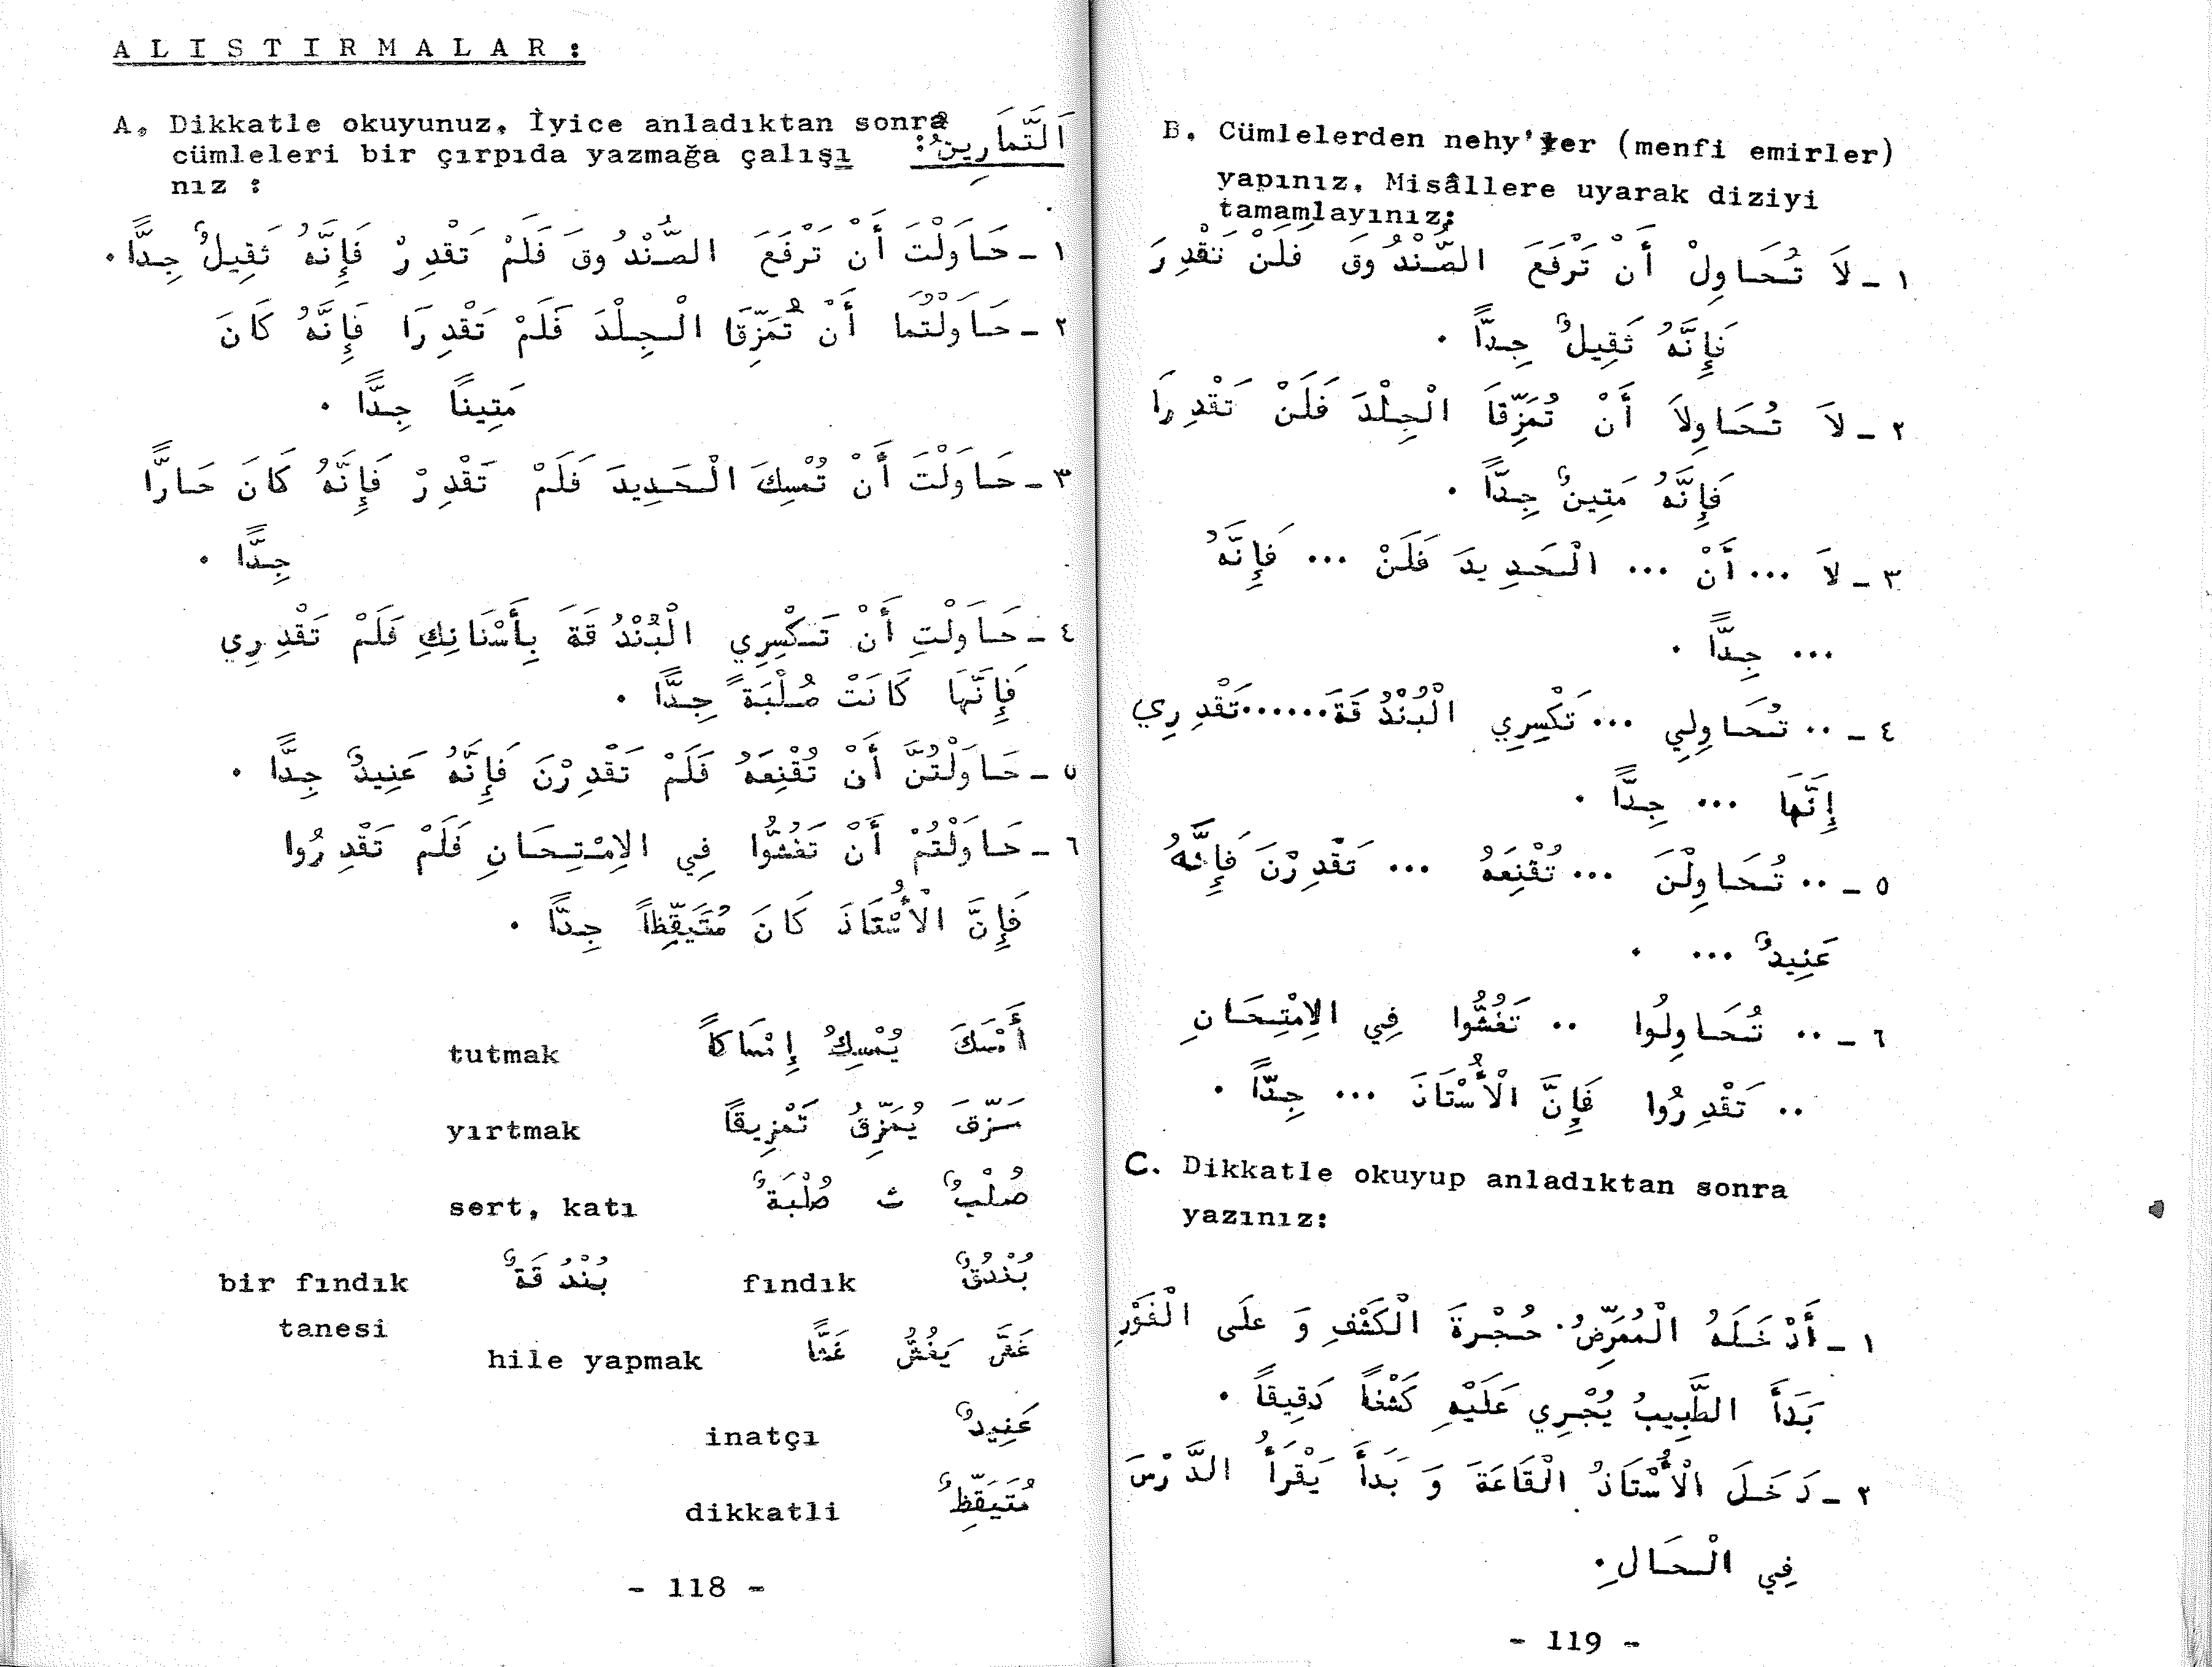 A L I S T I R M A L A R :
A. Dikkatle okuyunuz. İyice anladıktan sonra
cümleleri bir çırpıda yazmağa çalışı
nız :
اَلتَّمَارِينُ:
١ - حَاوَلْتَ أَنْ تَرْفَعَ الصُّنْدُوقَ فَلَمْ تَقْدِرْ فَإِنَّهُ ثَقِيلٌ جِدًّا .
٢ - حَاوَلْتُمَا أَنْ تُمَزِّقَا الْجِلْدَ فَلَمْ تَقْدِرَا فَإِنَّهُ كَانَ
مَتِينًا جِدًّا .
٣ - حَاوَلْتَ أَنْ تُمْسِكَ الْحَدِيدَ فَلَمْ تَقْدِرْ فَإِنَّهُ كَانَ حَارًّا
جِدًّا .
٤ - حَاوَلْتِ أَنْ تَكْسِرِي الْبُنْدُقَةَ بِأَسْنَانِكِ فَلَمْ تَقْدِرِي
فَإِنَّهَا كَانَتْ صُلْبَةً جِدًّا .
٥ - حَاوَلْتُنَّ أَنْ تُقْنِعَهُ فَلَمْ تَقْدِرْنَ فَإِنَّهُ عَنِيدٌ جِدًّا .
٦ - حَاوَلْتُمْ أَنْ تَغُشُّوا فِي الاِمْتِحَانِ فَلَمْ تَقْدِرُوا
فَإِنَّ الْأُسْتَاذَ كَانَ مُتَيَقِّظاً جِدًّا .
أَمْسَكَ يُمْسِكُ إِمْسَاكاً tutmak
مَزَّقَ يُمَزِّقُ تَمْزِيقاً yırtmak
صُلْبٌ ث صُلْبَةٌ sert, katı
بُنْدُقٌ fındık بُنْدُقَةٌ bir fındık
tanesi
غَشَّ يَغُشُّ غَشًّا hile yapmak
عَنِيدٌ inatçı
مُتَيَقِّظٌ dikkatli
- 118 -
B. Cümlelerden nehy'ler (menfi emirler)
yapınız. Misâllere uyarak diziyi
tamamlayınız:
١ - لاَ تُحَاوِلْ أَنْ تَرْفَعَ الصُّنْدُوقَ فَلَنْ تَقْدِرَ
فَإِنَّهُ ثَقِيلٌ جِدًّا .
٢ - لاَ تُحَاوِلاَ أَنْ تُمَزِّقَا الْجِلْدَ فَلَنْ تَقْدِرَا
فَإِنَّهُ مَتِينٌ جِدًّا .
٣ - لاَ ... أَنْ ... الْحَدِيدَ فَلَنْ ... فَإِنَّهُ
... جِدًّا .
٤ - .. تُحَاوِلِي ... تَكْسِرِي الْبُنْدُقَةَ......تَقْدِرِي
إِنَّهَا ... جِدًّا .
٥ - .. تُحَاوِلْنَ ... تُقْنِعَهُ ... تَقْدِرْنَ فَإِنَّهُ
عَنِيدٌ ... .
٦ - .. تُحَاوِلُوا .. تَغُشُّوا فِي الاِمْتِحَانِ
.. تَقْدِرُوا فَإِنَّ الْأُسْتَاذَ ... جِدًّا .
C. Dikkatle okuyup anladıktan sonra
yazınız:
١ - أَدْخَلَهُ الْمُمَرِّضُ حُجْرَةَ الْكَشْفِ وَ عَلَى الْفَوْرِ
بَدَأَ الطَّبِيبُ يُجْرِي عَلَيْهِ كَشْفاً دَقِيقاً .
٢ - دَخَلَ الْأُسْتَاذُ الْقَاعَةَ وَ بَدَأَ يَقْرَأُ الدَّرْسَ
فِي الْحَالِ.
- 119 -